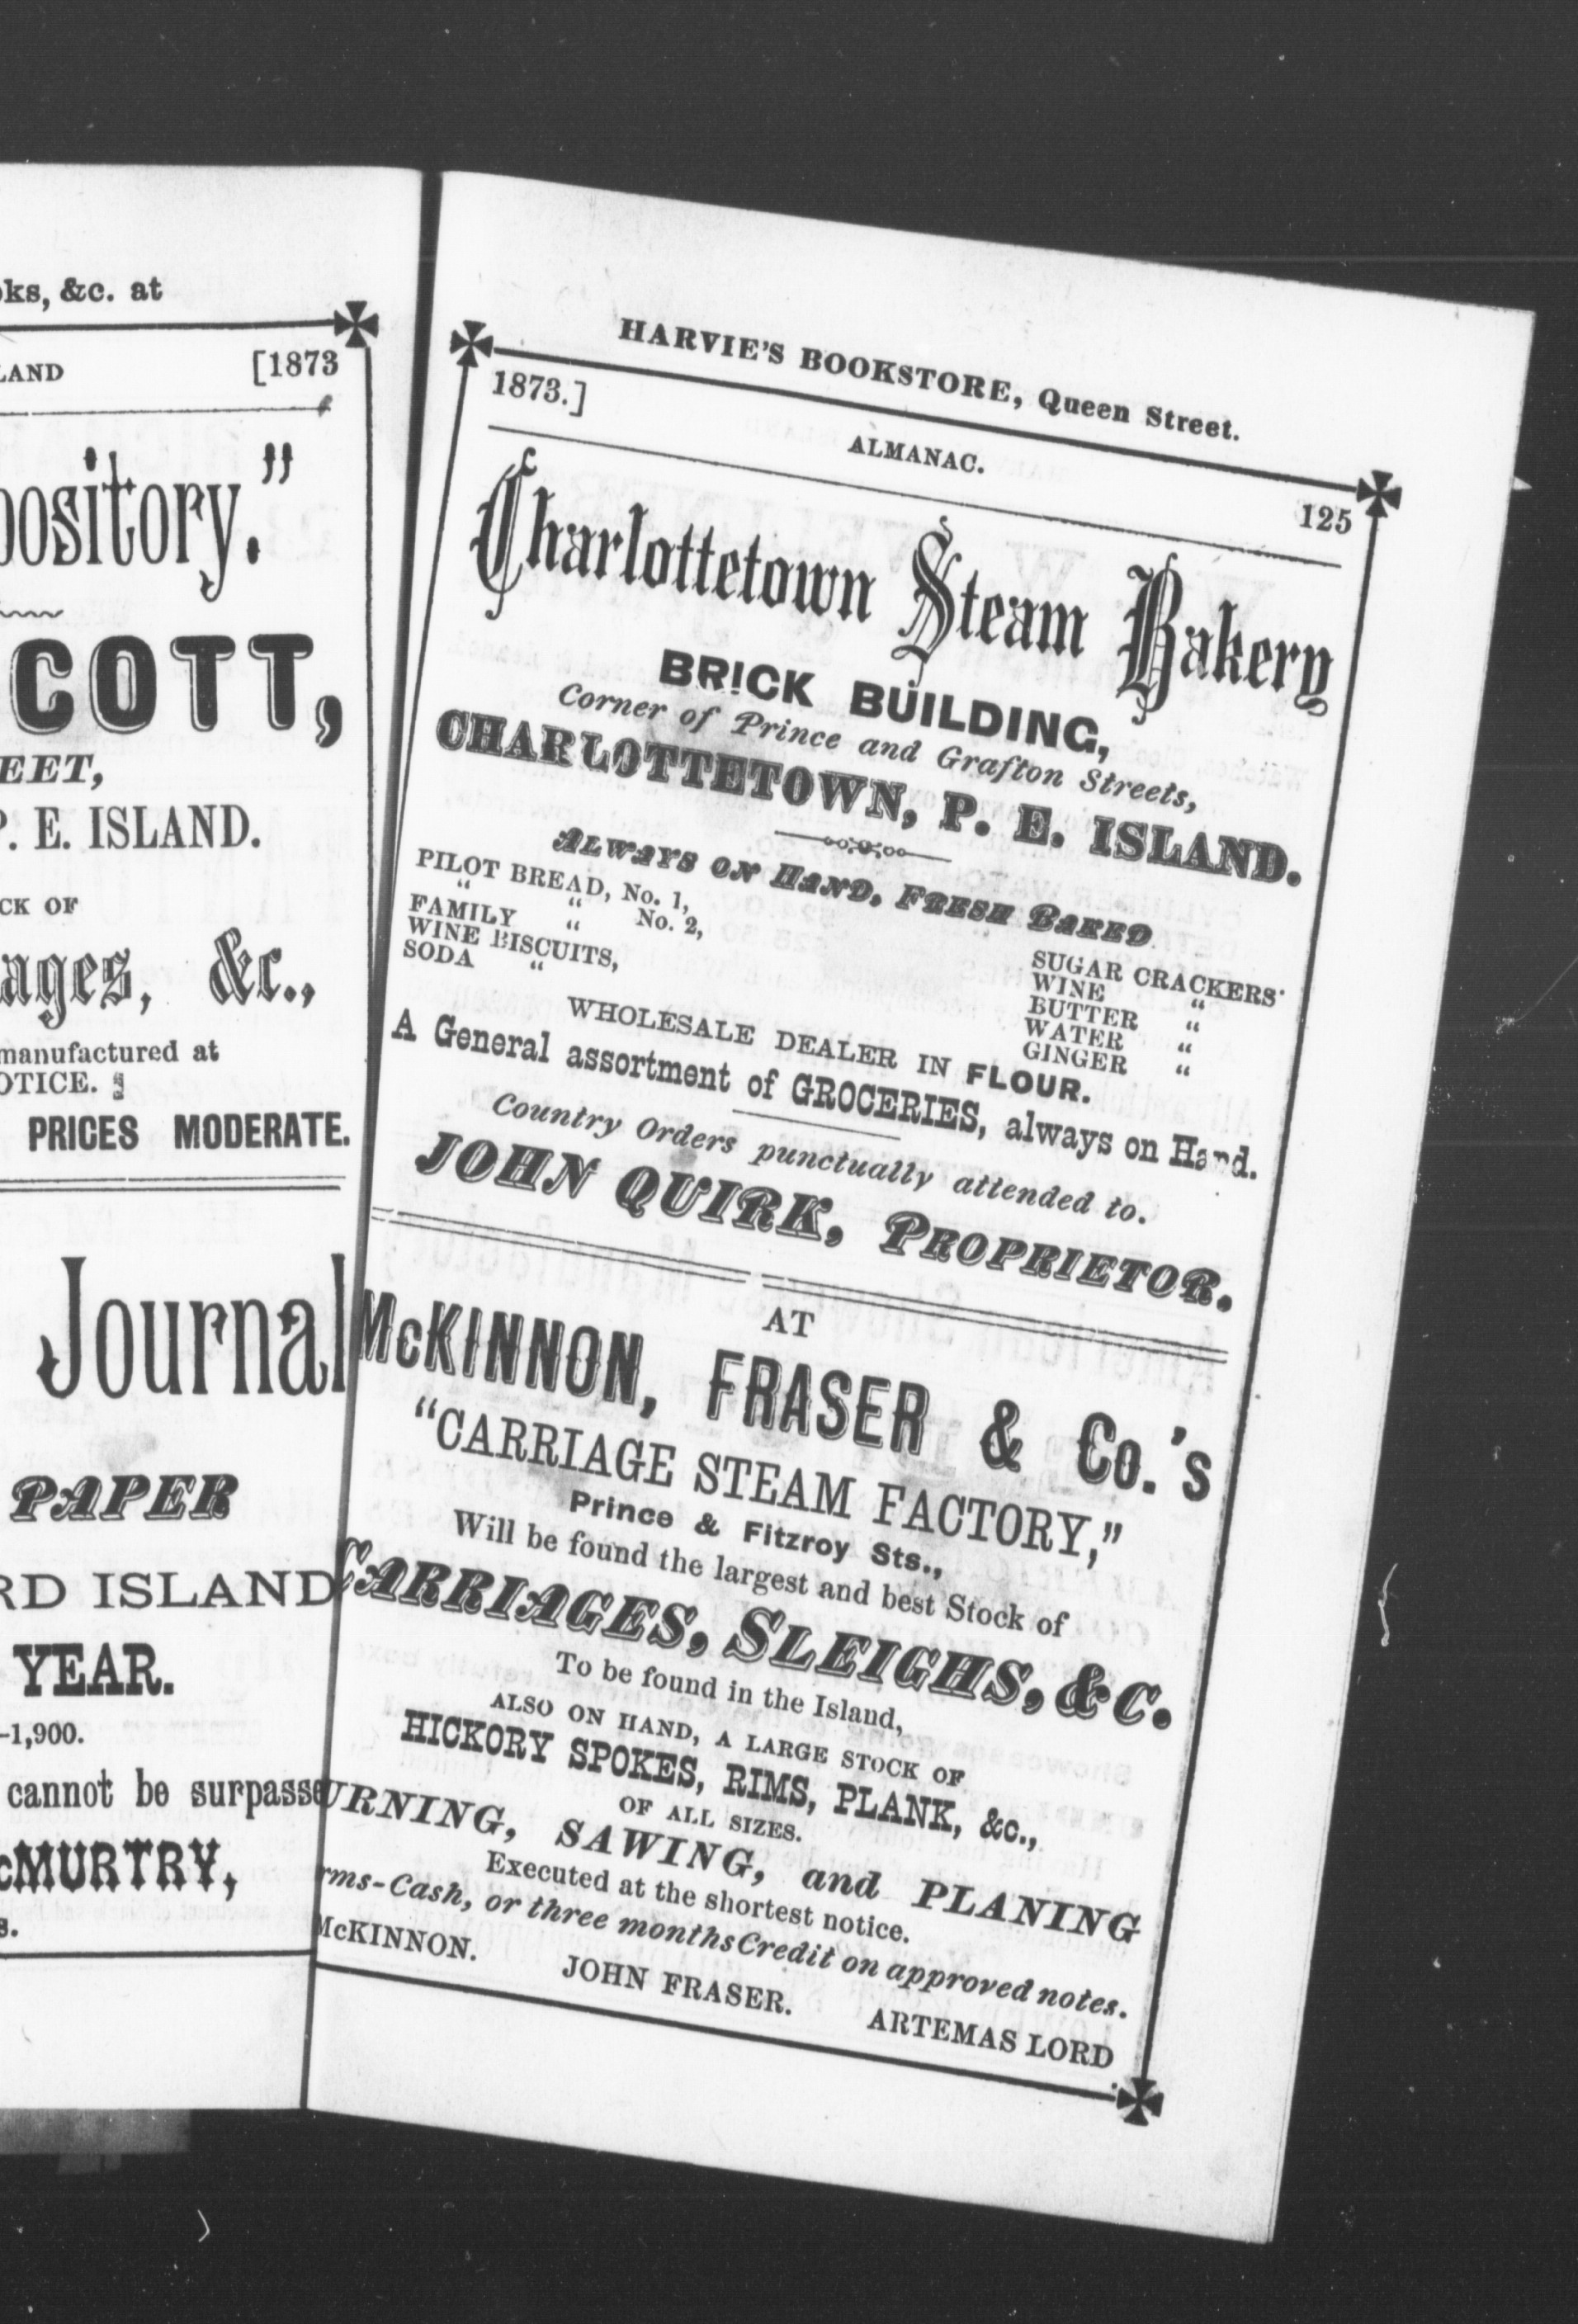 &c. at
[1873
COTT,
P. E. ISLAND.
OF
&c.,
manufactured at
PRICES MODERATE.
Journal
PAPER
ISLAND
YEAR.
1,900.
cannot be
HARVIE'S BOOKSTORE, Queen Street.
1873.]
ALMANAC.
125
Charlottetown Steam Bakery
BRICK BUILDING,
Corner of Prince and Grafton Streets,
CHARLOTTETOWN, P. E. ISLAND.
ALWAYS ON HAND, FRESH BAKED
PILOT BREAD, No. 1,
“ “ No. 2,
FAMILY “
WINE BISCUITS,
SODA “
SUGAR CRACKERS
WINE “
BUTTER “
WATER “
GINGER “
WHOLESALE DEALER IN FLOUR.
A General assortment of GROCERIES, always on Hand.
Country Orders punctually attended to.
JOHN QUIRK, PROPRIETOR.
AT
McKINNON, FRASER & Co.'s
“CARRIAGE STEAM FACTORY,”
Prince & Fitzroy Sts.,
Will be found the largest and best Stock of
CARRIAGES, SLEIGHS, &C.
To be found in the Island,
ALSO ON HAND, A LARGE STOCK OF
HICKORY SPOKES, RIMS, PLANK, &c.,
OF ALL SIZES.
URNING, SAWING, and PLANING
Executed at the shortest notice.
rms-Cash, or three months Credit on approved notes.
McKINNON. JOHN FRASER. ARTEMAS LORD